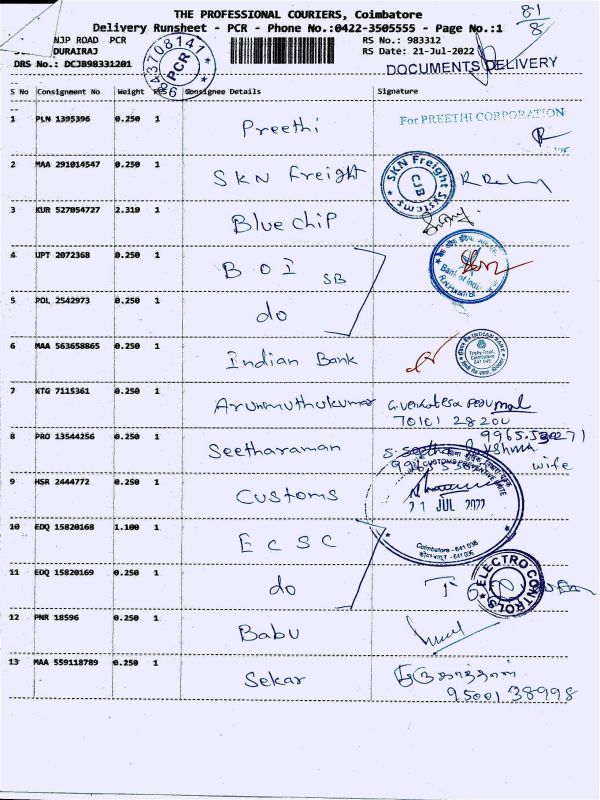 THE PROFESSIONAL COURIERS, Coimbatore
81/8
Delivery Runsheet - PCR - Phone No.:0422-3505555 - Page No.:1
NJP ROAD PCR
RS No.: 983312
DURAIRAJ
RS Date: 21-Jul-2022
DRS No.: DCJB98331201
DOCUMENTS DELIVERY
9843708141
PCR
S No Consignment No Weight PCS Consignee Details Signature
1 PLN 1395396 0.250 1 Preethi For PREETHI CORPORATION
2 MAA 291014547 0.250 1 SKN Freight SKN Freight Systems CJB
3 KUR 527054727 2.310 1 Bluechip
4 UPT 2072368 0.250 1 BOI SB Bank of India
5 POL 2542973 0.250 1 do
6 MAA 563658865 0.250 1 Indian Bank INDIAN BANK
Trichy Road,
Coimbatore
7 KTG 7115361 0.250 1 Arunmuthukumar G. Venkatesa Perumal
70101 28200
8 PRO 13544256 0.250 1 Seetharaman
wife
9 HSR 2444772 0.250 1 Customs
21 JUL 2022
Coimbatore - 641 036
10 EDQ 15820168 1.100 1 ECSC
11 EDQ 15820169 0.250 1 do ELECTRO CONTROLS
12 PNR 18596 0.250 1 Babu
13 MAA 559118789 0.250 1 Sekar
95001 38998